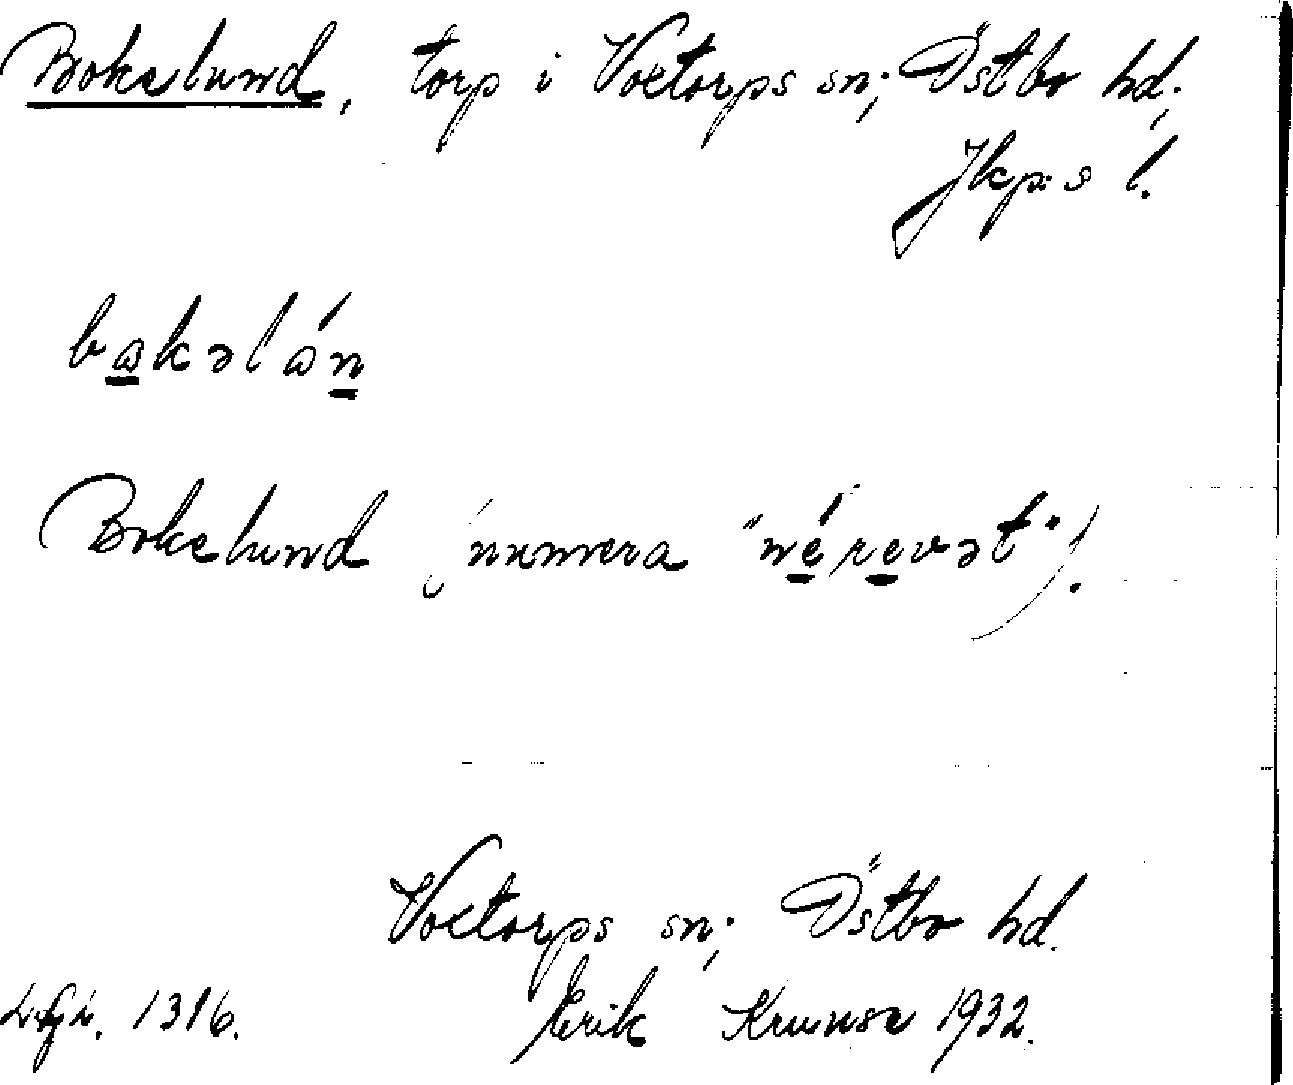 Bokelund, torp i Voxtorps sn; Östbo hd;
Jkps l.
bakəlán
Bokelund (numera "nérevət").
Voxtorps sn; Östbo hd.
1316. Erik 1932.